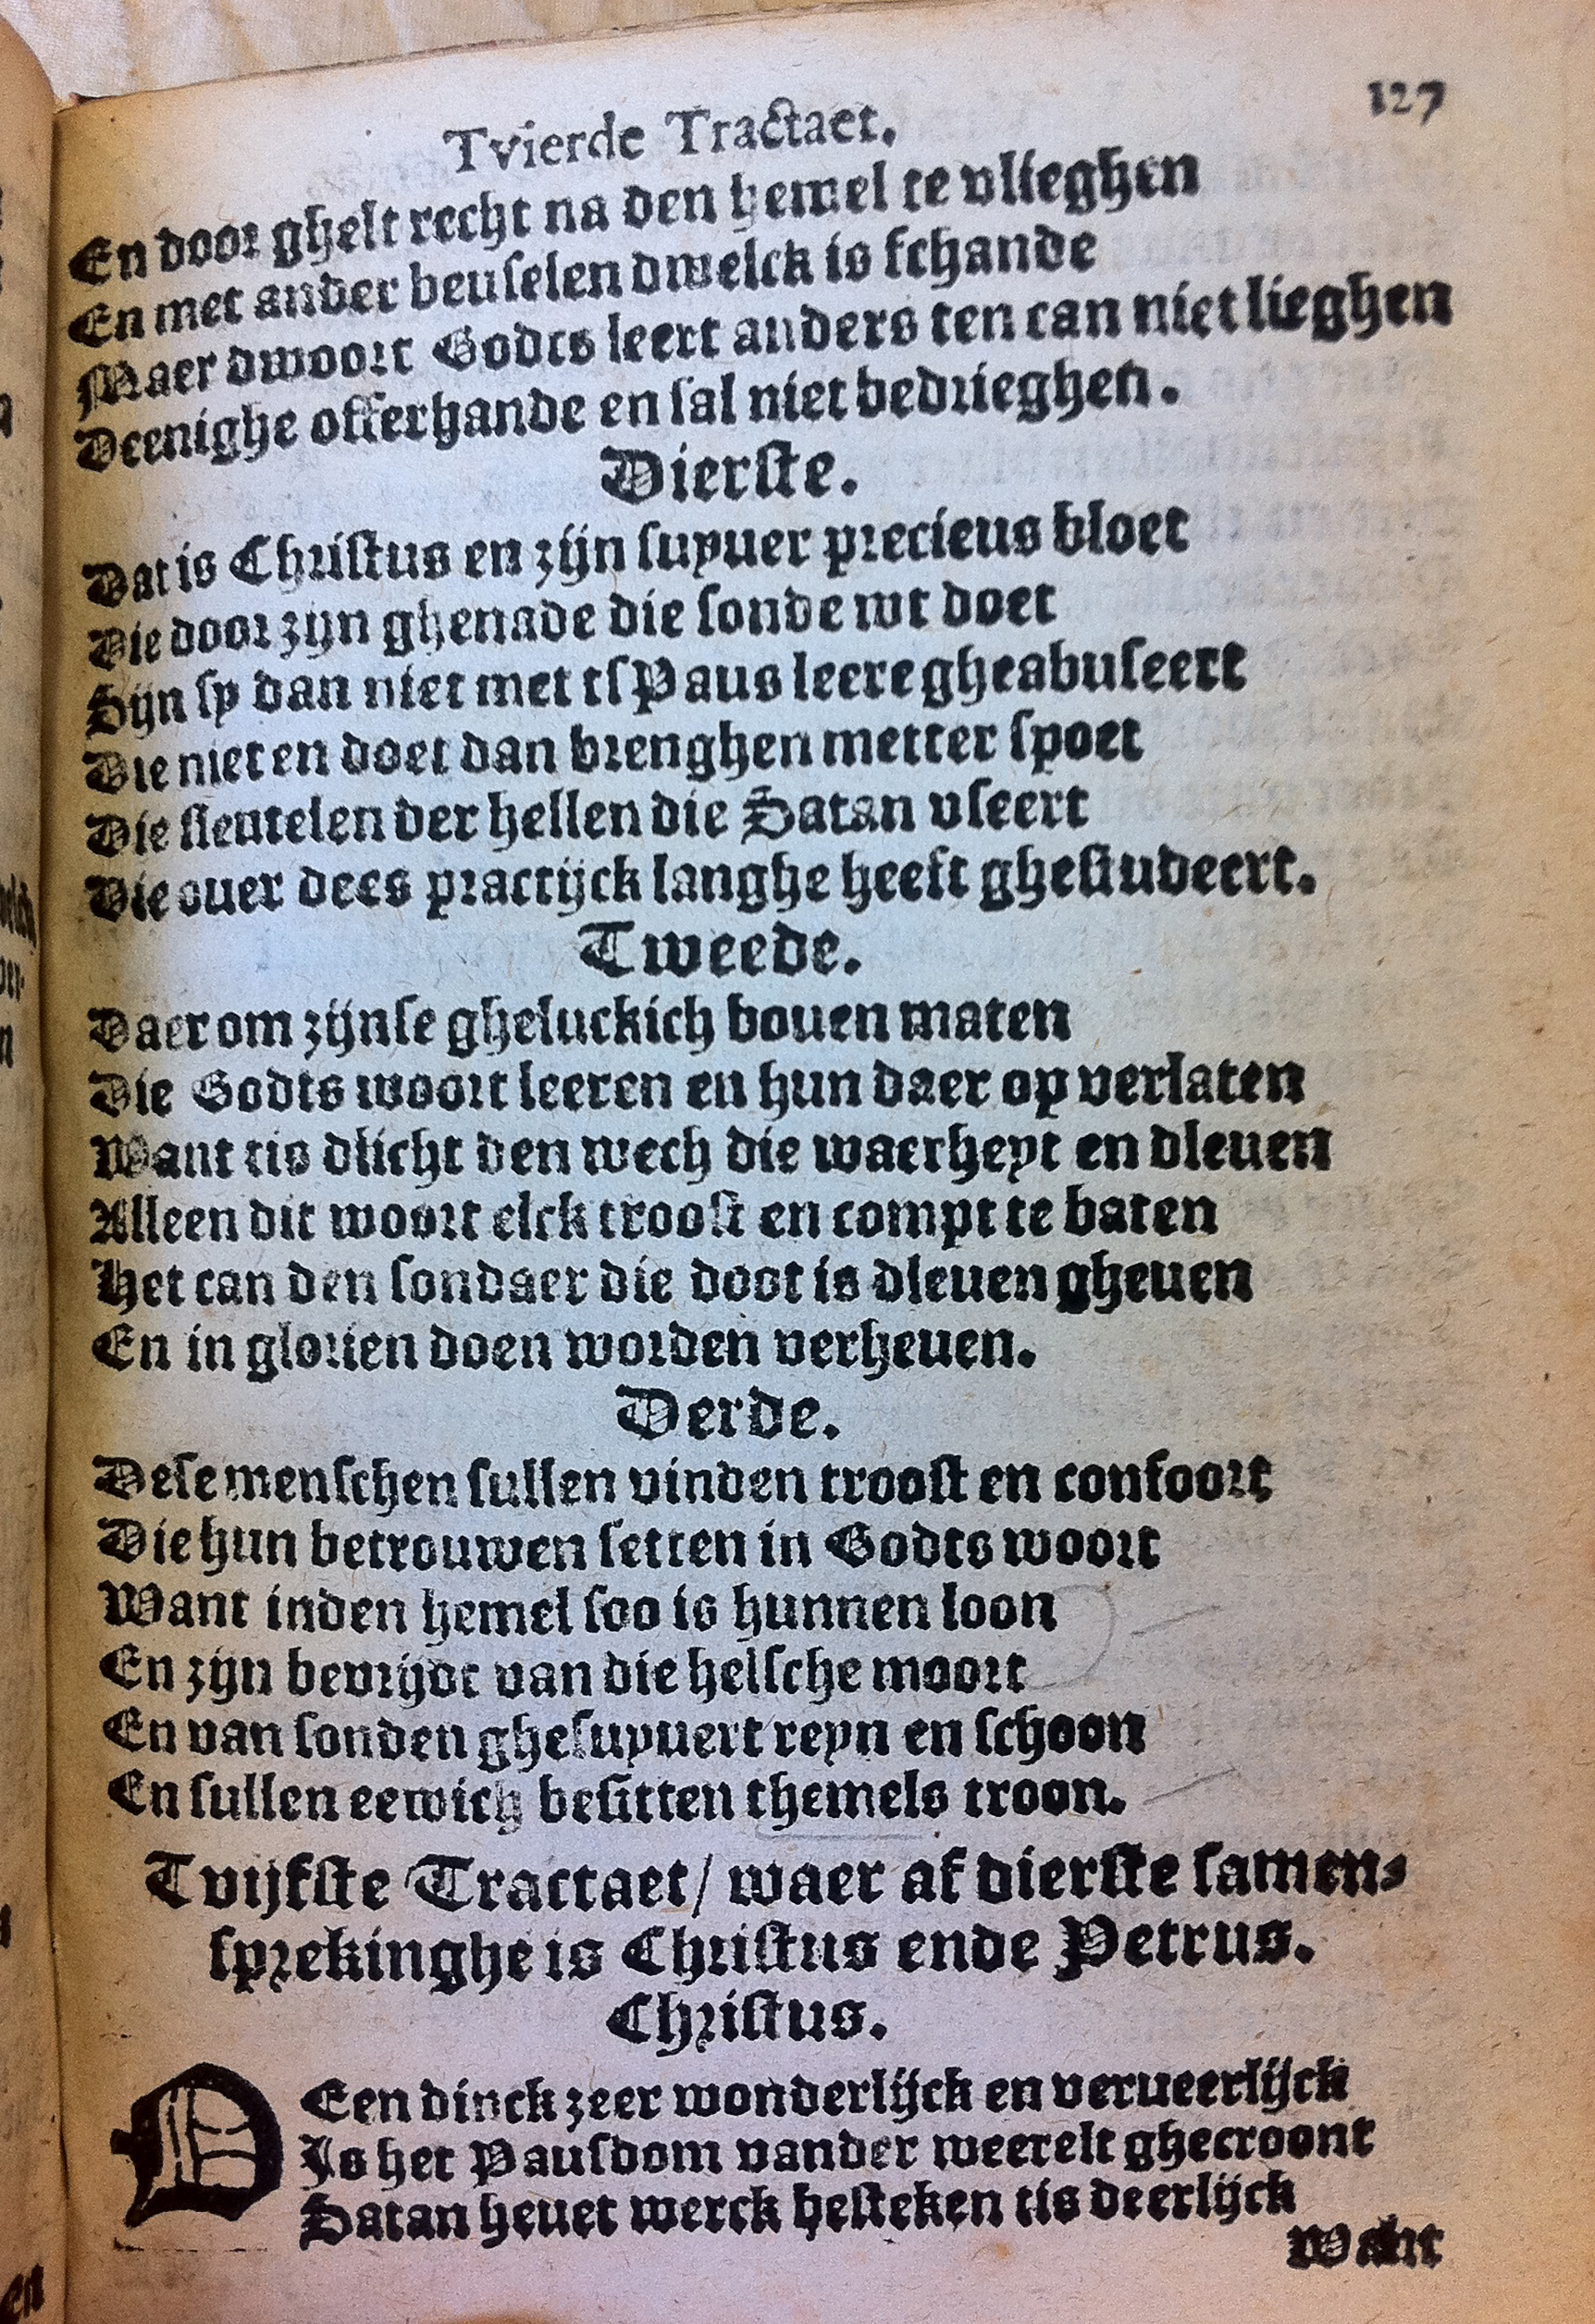 Tvierde Tractaet.
127
En door ghelt recht na den hemel te vlieghen
En met ander beuselen dwelck is schande
Maer dwoort Godts leert anders ten can niet lieghen
Deenighe offerhande en sal niet bedrieghen.
Dierste.
Dat is Christus en zijn supuer precieus bloet
Die door zijn ghenade die sonde wt doet
Sijn sy dan niet met tsPaus leere gheabuseert
Die niet en doet dan brenghen metter spoet
Die sleutelen der hellen die Satan vseert
Die ouer dees practijck langhe heeft ghestudeert.
Tweede.
Daer om zijnse gheluckich bouen maten
Die Godts woort leeren en hun daer op verlaten
Want tis dlicht den wech die waerheyt en dleuen
Alleen dit woort elck troost en compt te baten
Het can den sondaer die doot is dleuen gheuen
En in glorien doen worden verheuen.
Derde.
Dese menschen sullen vinden troost en confoort
Die hun betrouwen setten in Godts woort
Want inden hemel soo is hunnen loon
En zijn bevrijdt van die helsche moort
En van sonden ghesuyuert reyn en schoon
En sullen eewich besitten themels troon.
Tvijfste Tractaet/ waer af dierste samen-
sprekinghe is Christus ende Petrus.
Christus.
DEen dinck zeer wonderlijck en verueerlijck
Is het Pausdom vander weerelt ghecroont
Satan heuet werck besteken tis deerlijck
Want